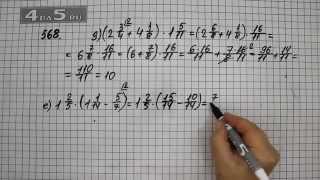 4ВА5.RU
568. д) (2 3/4 + 4 1/8) · 1 5/11 = (2 6/8 + 4 1/8) · 16/11 =
= 6 7/8 · 16/11 = (6 + 7/8) · 16/11 = 6·16/11 + 7/8 · 16/11 = 96/11 + 14/11 =
= 110/11 = 10
е) 1 2/5 · (1 1/14 - 5/7) = 1 2/5 · (15/14 - 10/14) = 7